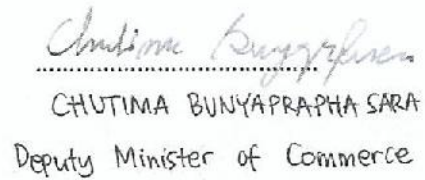 CHUTIMA BUNYAPRAPHASARA
Deputy Minister of Commerce